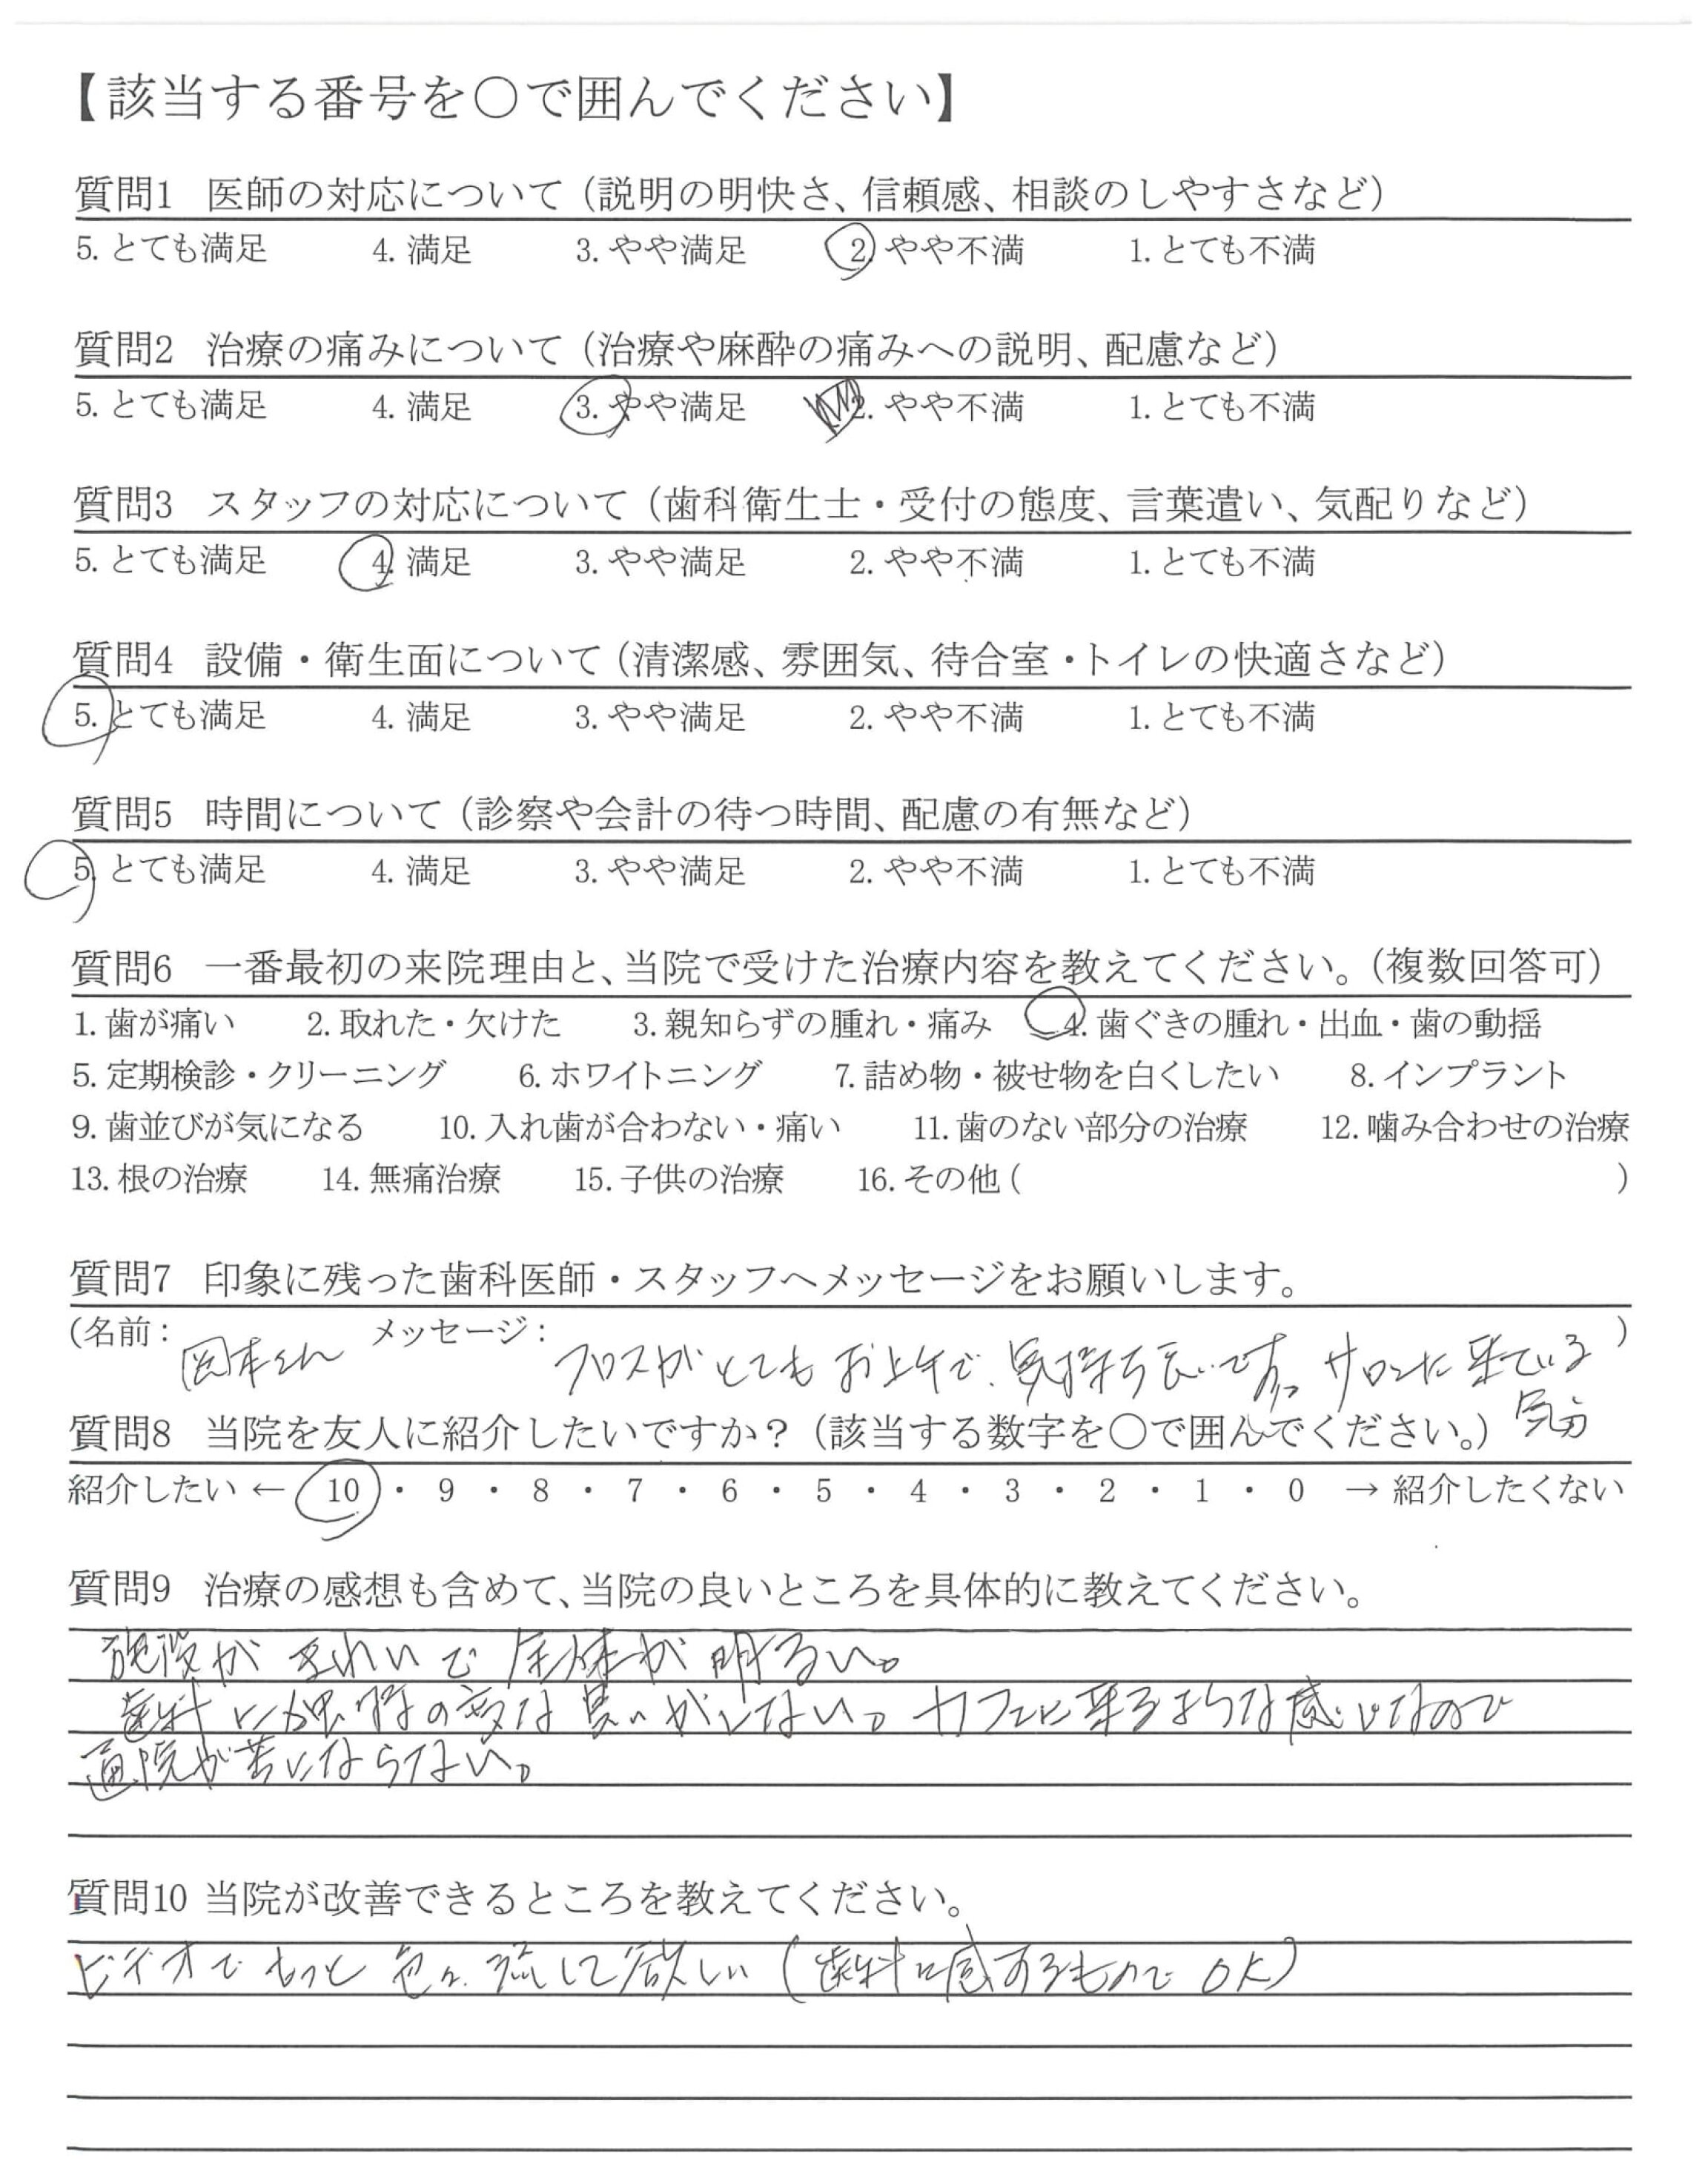 【該当する番号を〇で囲んでください】
質問1 医師の対応について（説明の明快さ、信頼感、相談のしやすさなど）
5. とても満足 4. 満足 3. やや満足 2. やや不満 1. とても不満
質問2 治療の痛みについて（治療や麻酔の痛みへの説明、配慮など）
5. とても満足 4. 満足 3. やや満足 2. やや不満 1. とても不満
質問3 スタッフの対応について（歯科衛生士・受付の態度、言葉遣い、気配りなど）
5. とても満足 4. 満足 3. やや満足 2. やや不満 1. とても不満
質問4 設備・衛生面について（清潔感、雰囲気、待合室・トイレの快適さなど）
5. とても満足 4. 満足 3. やや満足 2. やや不満 1. とても不満
質問5 時間について（診察や会計の待つ時間、配慮の有無など）
5. とても満足 4. 満足 3. やや満足 2. やや不満 1. とても不満
質問6 一番最初の来院理由と、当院で受けた治療内容を教えてください。（複数回答可）
1. 歯が痛い 2. 取れた・欠けた 3. 親知らずの腫れ・痛み 4. 歯ぐきの腫れ・出血・歯の動揺
5. 定期検診・クリーニング 6. ホワイトニング 7. 詰め物・被せ物を白くしたい 8. インプラント
9. 歯並びが気になる 10. 入れ歯が合わない・痛い 11. 歯のない部分の治療 12. 噛み合わせの治療
13. 根の治療 14. 無痛治療 15. 子供の治療 16. その他（ ）
質問7 印象に残った歯科医師・スタッフへメッセージをお願いします。
（名前： 岡本さん メッセージ： フロスがとてもお上手で、気持ち良いです。サロンに来ている ）
気分
質問8 当院を友人に紹介したいですか？（該当する数字を〇で囲んでください。）
紹介したい ← 10 ・ 9 ・ 8 ・ 7 ・ 6 ・ 5 ・ 4 ・ 3 ・ 2 ・ 1 ・ 0 → 紹介したくない
質問9 治療の感想も含めて、当院の良いところを具体的に教えてください。
施設がきれいで全体が明るい。
歯科に独特の変な臭いがしない。カフェに来るような感じなので
通院が苦にならない。
質問10 当院が改善できるところを教えてください。
ビデオでもっと色々流して欲しい（歯科に関するものでOK）